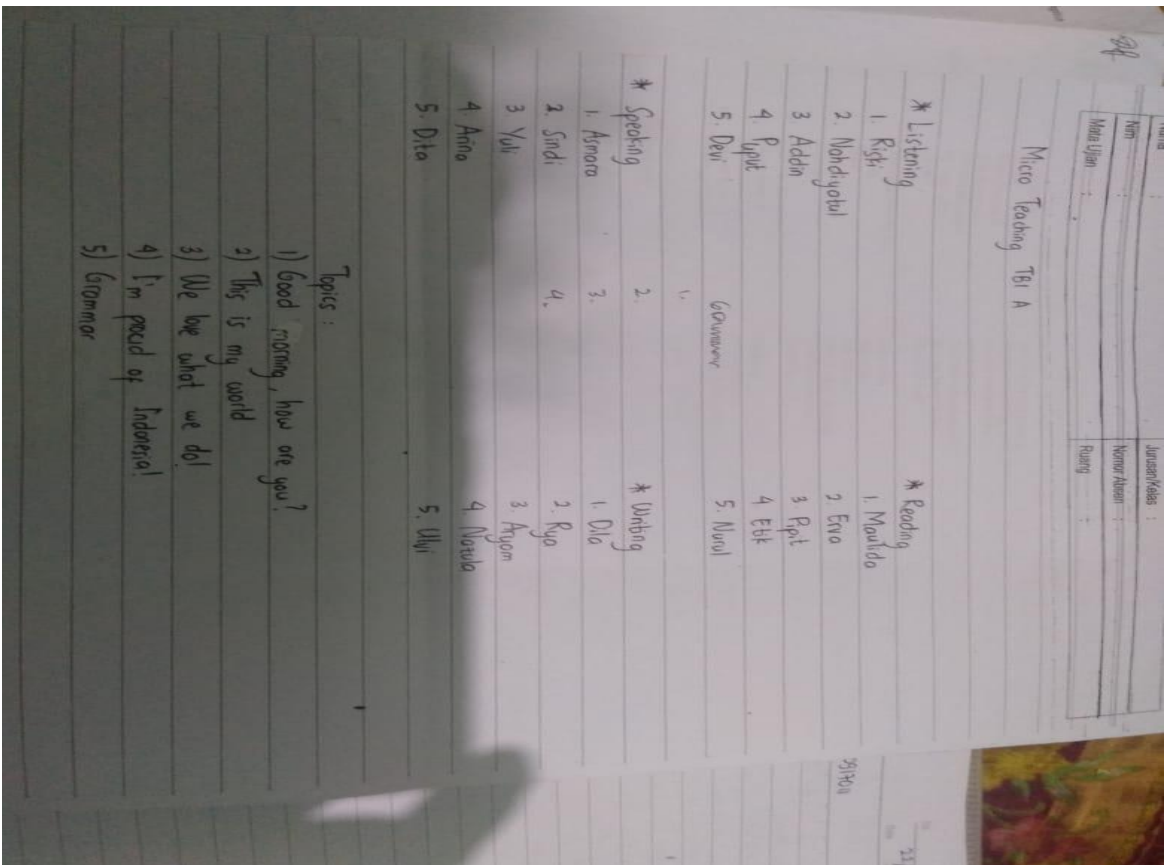 Nama :
Jurusan/Kelas :
Nim :
Nomor Absen :
Mata Ujian :
Ruang :
Micro Teaching TBI A
* Listening
1. Riski
2. Nahdiyatul
3 Addin
4. Puput
5. Devi
* Reading
1. Maulida
2. Erva
3 Pipit
4 Etik
5. Nurul
1.
2.
3.
4.
* Speaking
1. Asmara
2. Sindi
3 Yuli
4. Arina
5. Dita
* Writing
1. Dila
2. Rya
3. Aryam
4 Nazula
5. Ulvi
Topics :
1) Good morning, how are you?
2) This is my world
3) We love what we do!
4) I'm proud of Indonesia!
5) Grammar